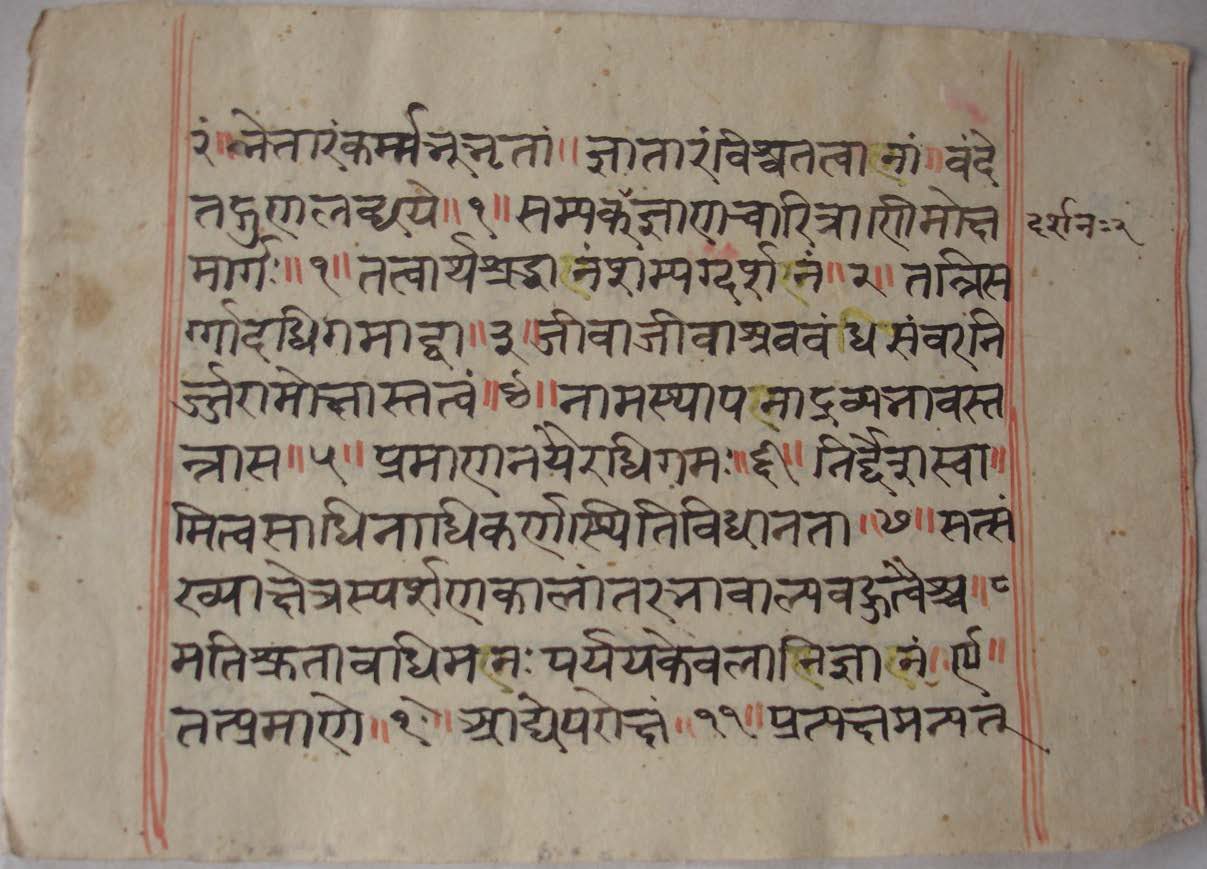 रं॥भेतारंकर्म्मभूभृतां॥ज्ञातारंविश्वतत्वानां॥वंदे
तद्गुणलब्धये॥१॥सम्यकँज्ञाणचारित्राणिमोक्ष
दर्शन॰२
मार्गः॥१॥तत्वार्थश्रद्धानंशम्यग्दर्शनं॥२॥तन्निस
र्ग्गादधिगमाद्वा॥३॥जीवाजीवाश्रववंधिसंवरनि
र्ज्जरामोक्षास्तत्वं॥४॥नामस्थापनाद्रव्यभावस्त
न्नास॥५॥प्रमाणनयैरधिगमः॥६॥निर्द्देशस्वा॥
मित्वसाधिनाधिकर्णस्थितिविधानता॥७॥सत्सं
ख्याक्षेत्रस्पर्शणकालांतरभावाल्पवहुत्वैश्च॥८
मतिश्रुतावधिमनःपर्ययकेवलानिज्ञानं॥९॥
तत्प्रमाणे॥१०॥आद्येपरोक्षं॥११॥प्रत्यक्षमन्यत्